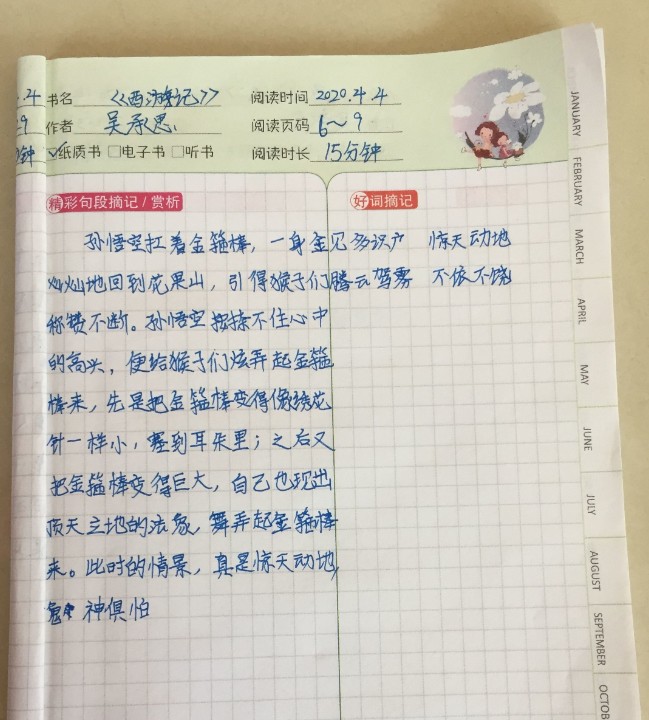 .4 书名 《西游记》 阅读时间 2020.4.4
9 作者 吴承恩 阅读页码 6~9
钟 ☑纸质书 □电子书 □听书 阅读时长 15分钟
精彩句段摘记 / 赏析 好词摘记
孙悟空扛着金箍棒，一身金
灿灿地回到花果山，引得猴子们
称赞不断。孙悟空按捺不住心中
的高兴，便给猴子们炫弄起金箍
棒来，先是把金箍棒变得像绣花
针一样小，塞到耳朵里；之后又
把金箍棒变得巨大，自己也现出
顶天立地的法象，舞弄起金箍棒
来。此时的情景，真是惊天动地，
鬼 神俱怕
见多识广 惊天动地
腾云驾雾 不依不饶
JANUARY
FEBRUARY
MARCH
APRIL
MAY
JUNE
JULY
AUGUST
SEPTEMBER
OCTOB